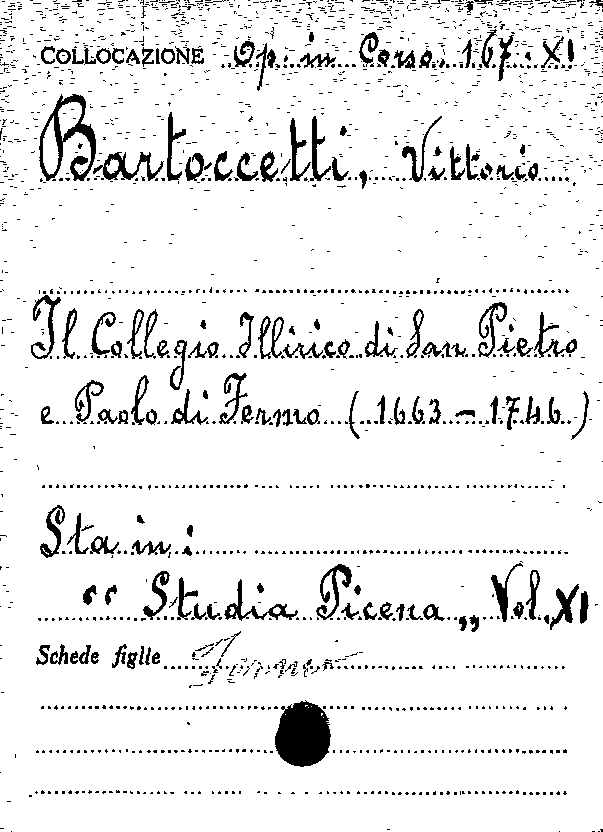 COLLOCAZIONE Op. in Corso. 167. XI
Bartoccetti, Vittorio
Il Collegio Illirico di San Pietro
e Paolo di Fermo (1663 – 1746)
Sta in:
“ Studia Picena „ Vol. XI
Schede figlie Fermo